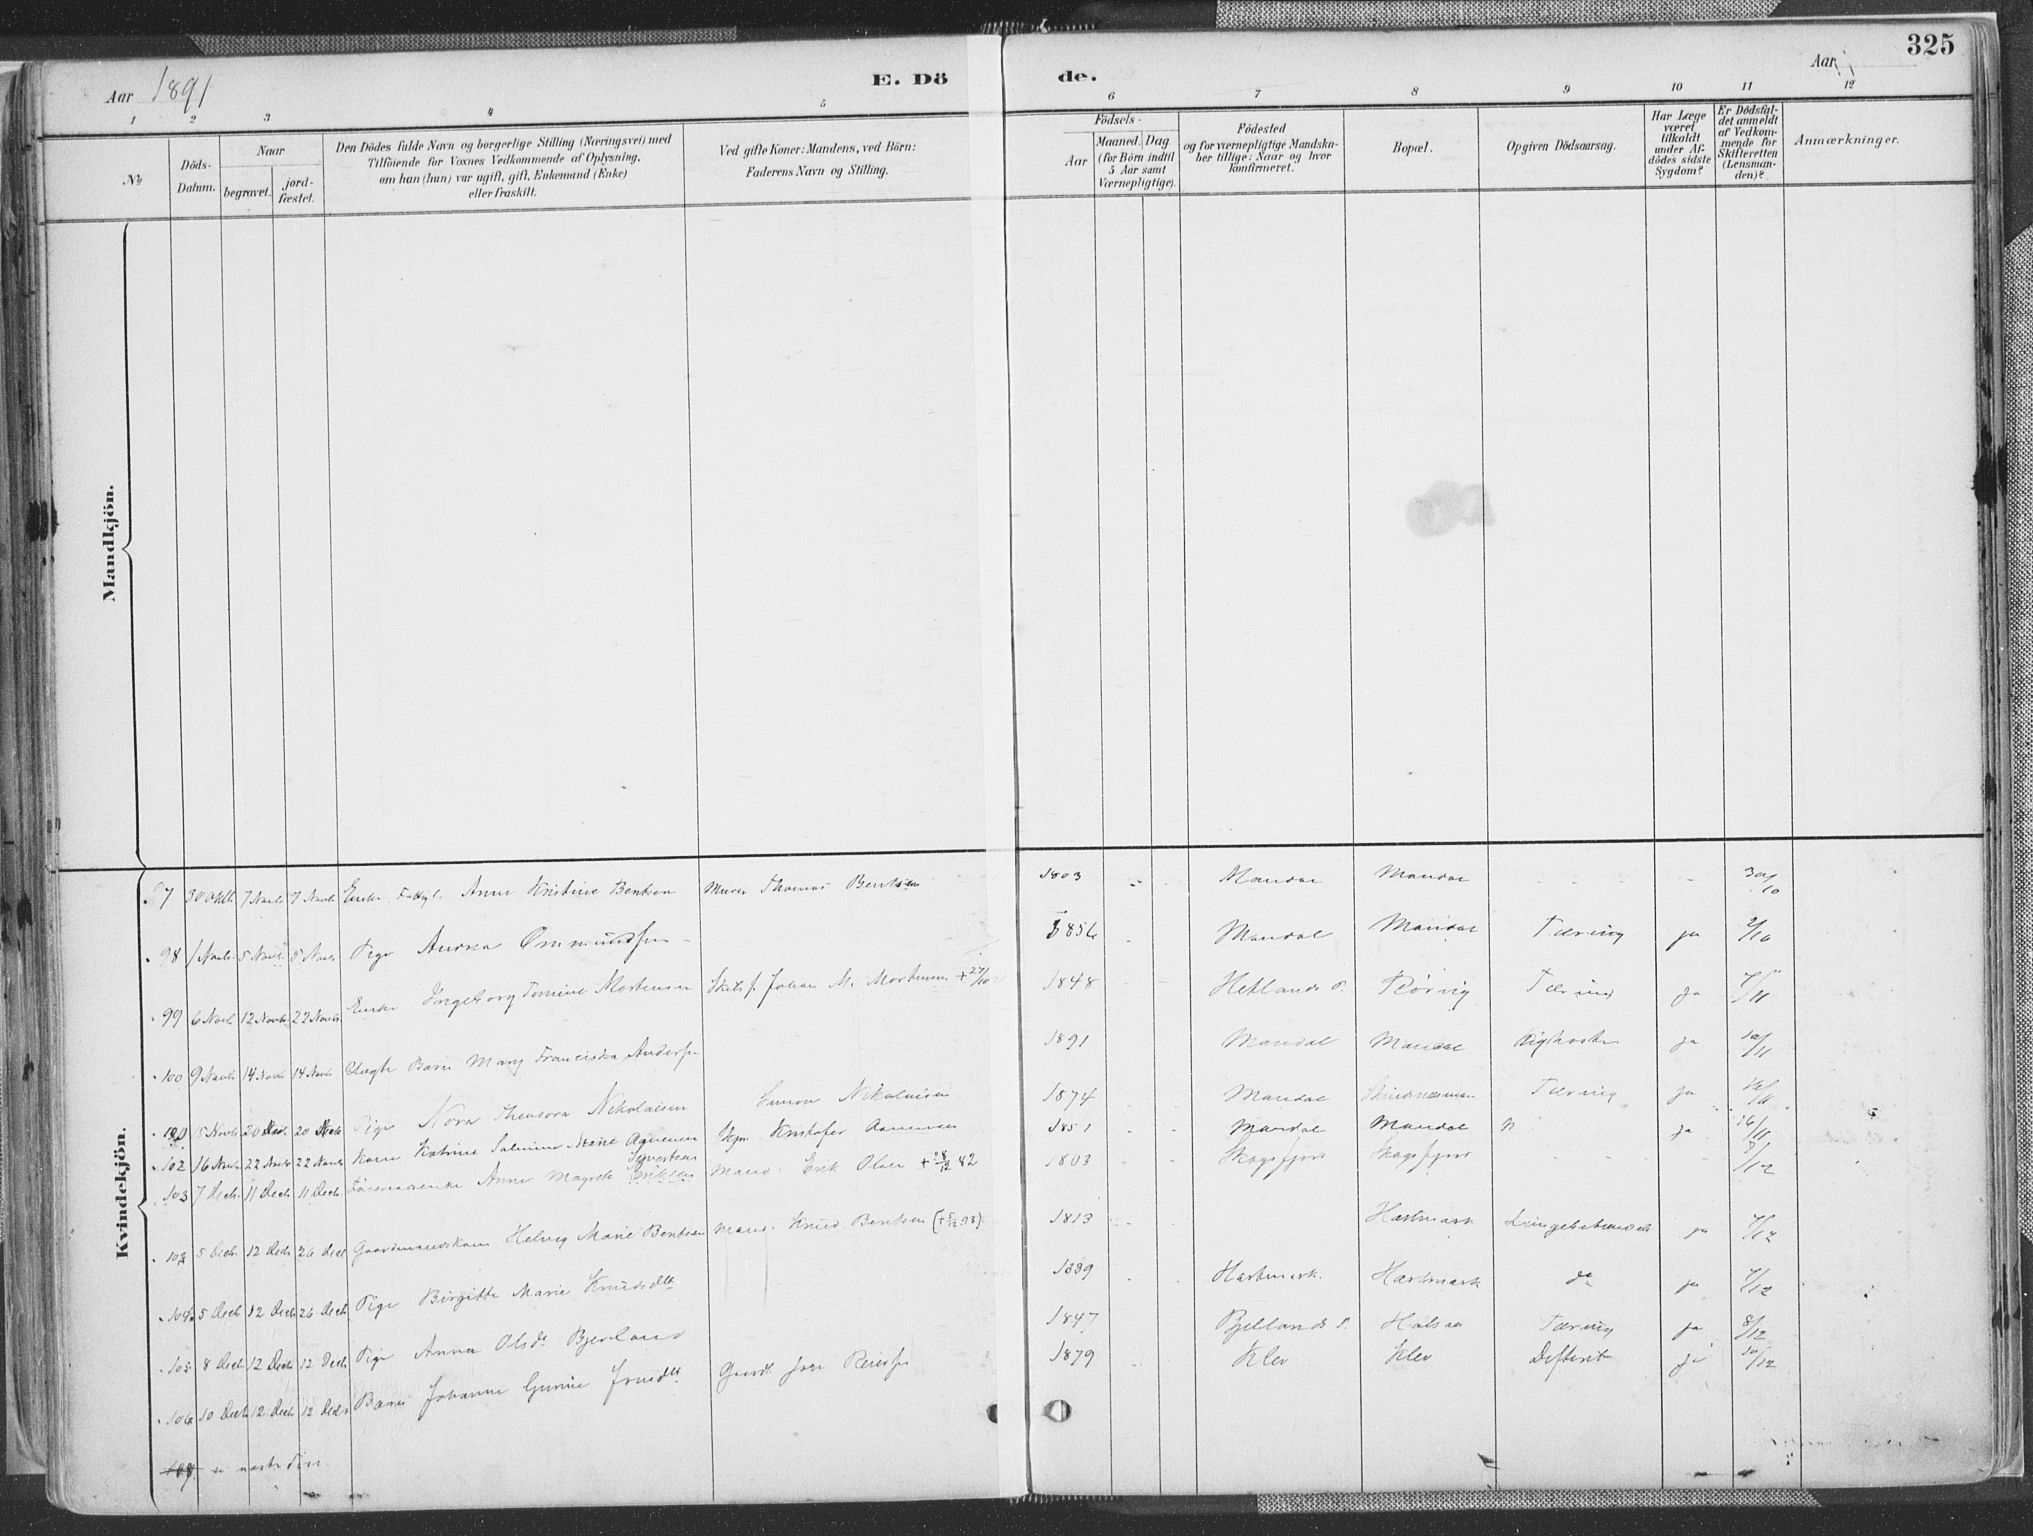 325
Aar 1891
E. Dö
de.
Aar
1 2 3 4 5 6 7 8 9 10 11 12
No
Döds-Datum.
Naar
begravet.
jord-fæstet.
Den Dödes fulde Navn og borgerlige Stilling (Næringsvei) med
Tilföiende for Voxnes Vedkommende af Oplysning,
om han (hun) var ugift, gift, Enkemand (Enke)
eller fraskilt.
Ved gifte Koner: Mandens, ved Börn:
Faderens Navn og Stilling.
Födsels-
Aar
Maaned. Dag.
(for Börn indtil
5 Aar samt
Værnepligtige).
Födested
og for værnepligtige Mandska-
ber tillige: Naar og hvor
konfirmeret.
Bopæl.
Opgiven Dödsaarsag.
Har Læge
været
tilkaldt
under Af-
dödes sidste
Sygdom?
Er Dödsfal-
det anmeldt
af Vedkom-
mende for
Skifteretten
(Lensman-
den)?
Anmærkninger.
Mandkjön.
Kvindekjön.
97 30 Oktb 7 Novb 7 Novb Enke Anne Kristine Bentsen Murer Thomas Bentsen 1803 Mandal Mandal 30/10
98 1 Novb 5 Novb 5 Novb Pige Andrea Ommundsen 1856 Mandal Mandal Tæring ja 2/10
99 6 Novb 12 Novb 22 Novb Enke Ingeborg Tomine Mortensen Johan M. Mortensen + 27/10 1848 Hetlands P. Tæring ja 7/11
100 9 Novb 14 Novb 14 Novb Ægte Barn Mary Franciska Andersen 1891 Mandal Mandal Kighoste ja 10/11
15 Novb 20 20 Pige Nora Theodora Nikolaisen Nikolaisen 1874 Mandal Tæring ja
102 16 Novb 22 Novb 22 Novb Kone Katrine Marie Aanensen Kristofer Aanensen 1851 Mandal Mandal ja 16/11
103 7 Decb 11 Decb 11 Decb Anne Magrete Syvertsen Eriksen Mand: Erik Olsen + 28/12 82 1803 Skogsfjord Skogsfjord
103 5 Decb 12 Decb 26 Decb Gaardmandskone Helvig Marie Bentsen Mand: Knud Bentsen 1813 Hartmark Lungebetændelse ja 7/12
104 5 Decb 12 Decb 26 Decb Pige Birgitte Marie Knudsdtt 1839 Hartmark. Hartmark do ja 7/12
105 8 Decb 12 Decb 12 Decb Pige Anna Olsdt Bjelland 1847 Bjellands P. Halsaa Tæring ja 8/12
106 10 Decb 12 Decb 12 Decb Barn Johanne Gurine 1879 Klev Klev Difterit ja 10/12